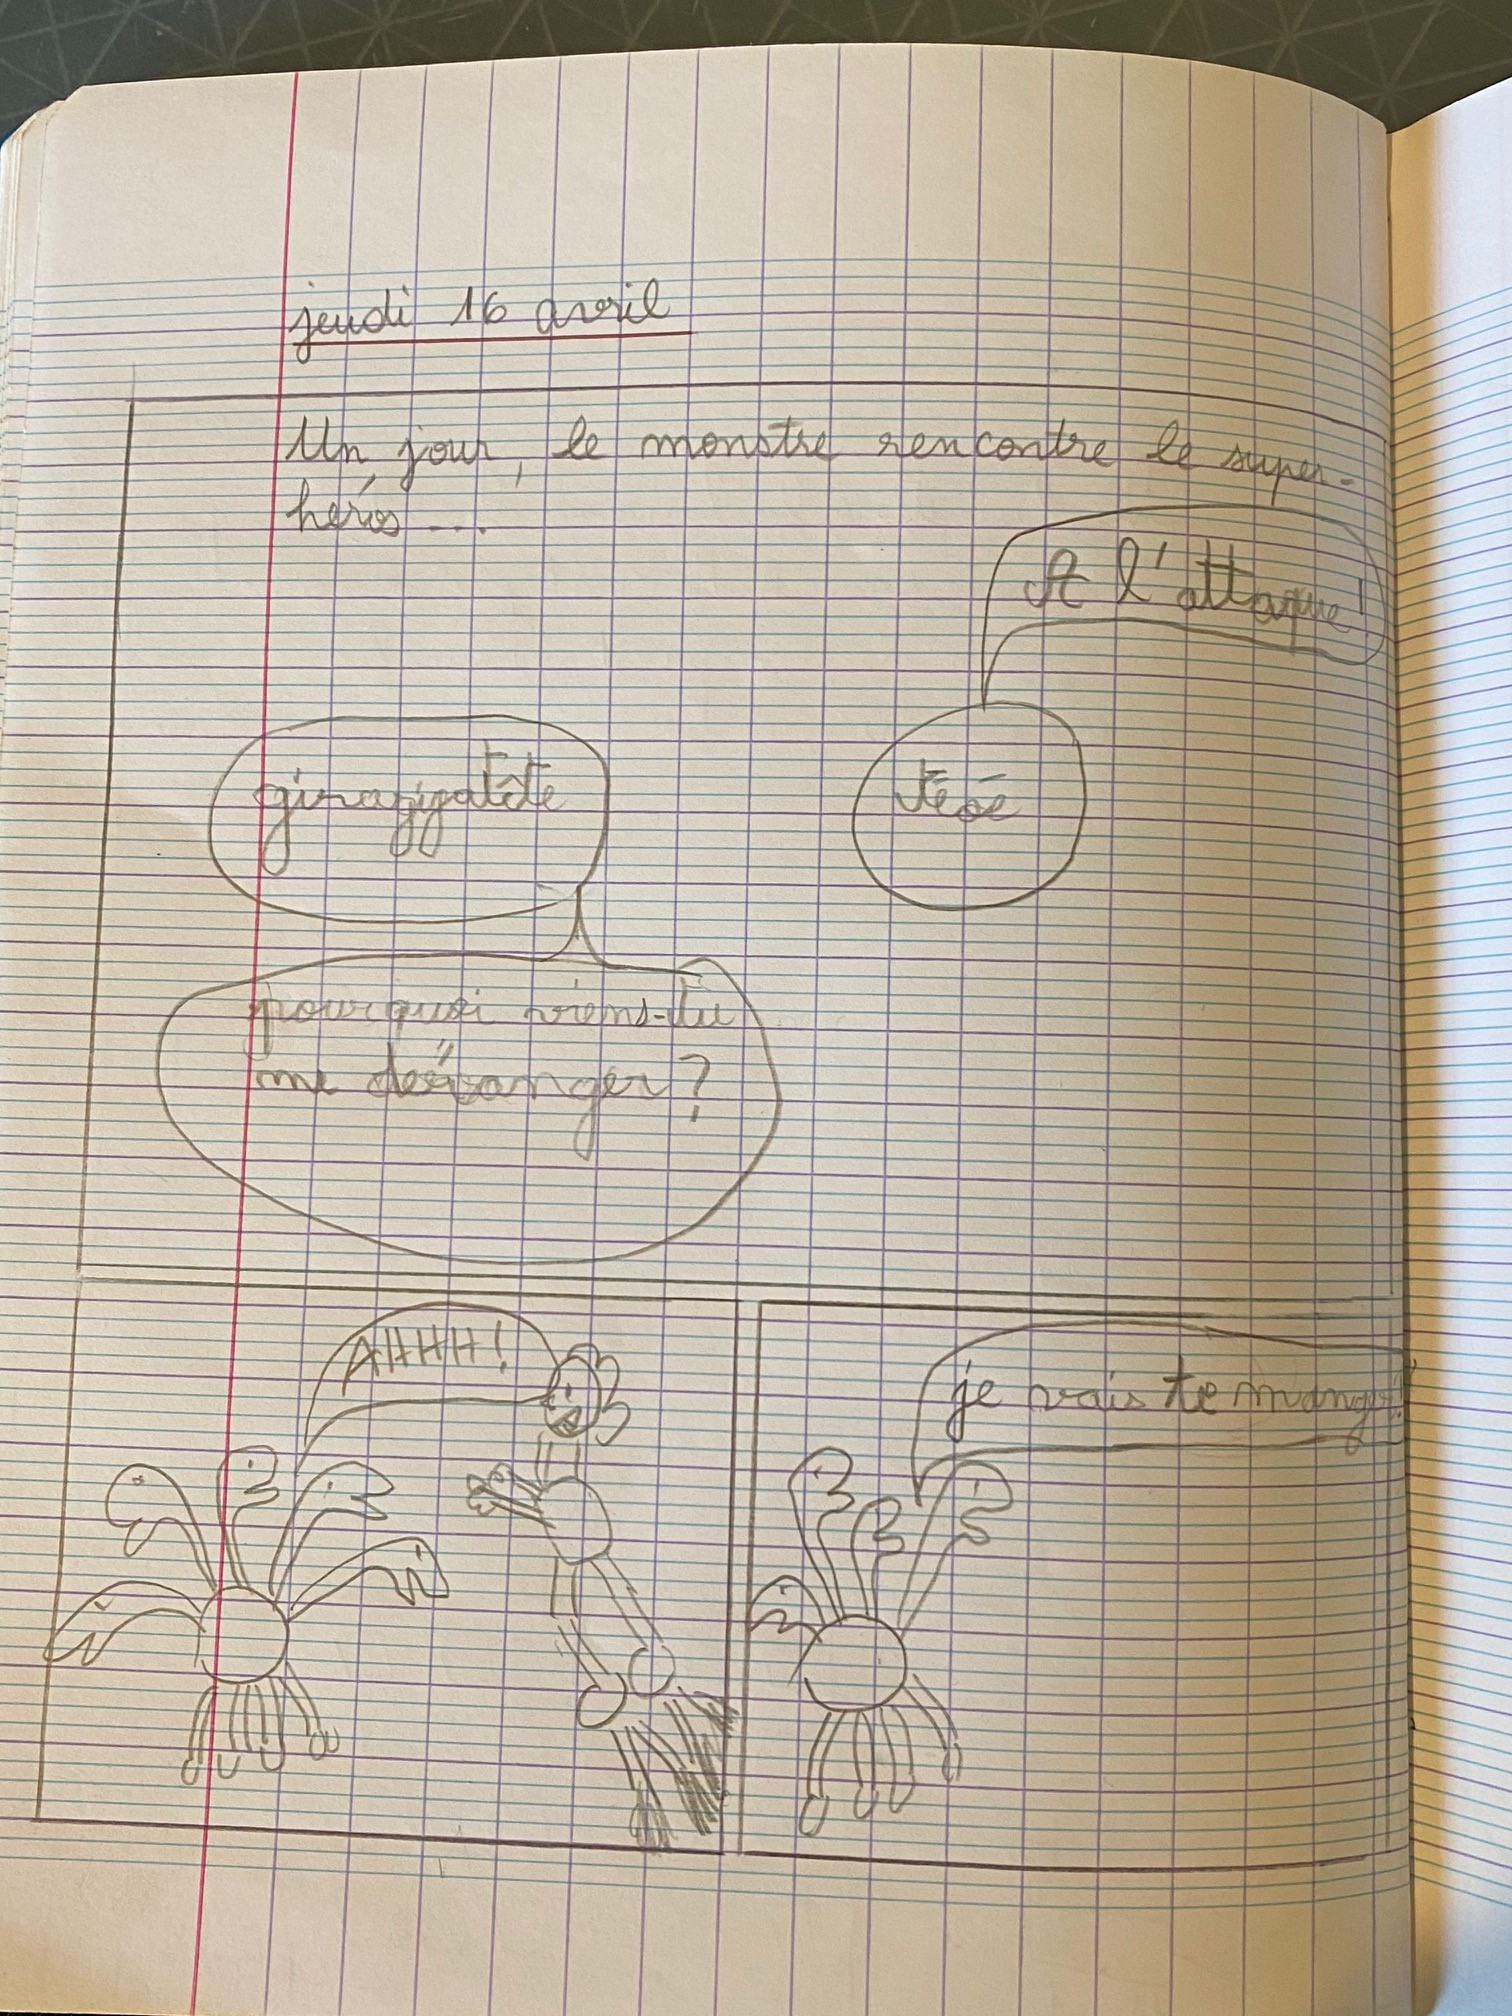 jeudi 16 avril
Un jour, le monstre rencontre le super-
héros ...
A l'attaque !
girafigatête
pourquoi viens-tu
me déranger ?
AHHH !
je vais te manger !